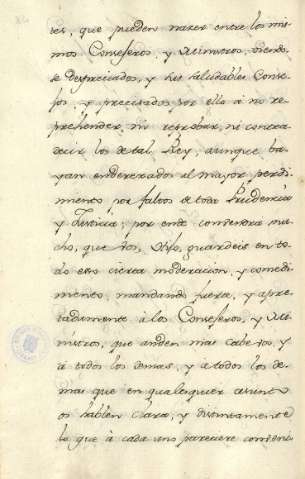 res, que pueden nacer entre los mis
mos Consejeros, y Ministros, viendo
se despreciados, y sus saludables Conse
jos, y precisados por ello á no re
prehender, ni reprobar, ni contra
decir los de tal Rey, aunque va
yan enderezados al mayor perdi
mento por faltos de toda Prudencia
y Justicia; por ende convendra mu
cho, que vos, guardeis en to
do esso cierta moderacion, y comedi
miento, mandando fuera, y apre
tadamente á los Consejeros, y Mi
nistros, que anden mas cabe vos, y
á todos los demas, y a todos los de
mas que en qualesquier assunt
os hablen clara, y distintamente
lo que á cada uno pareciere conveni